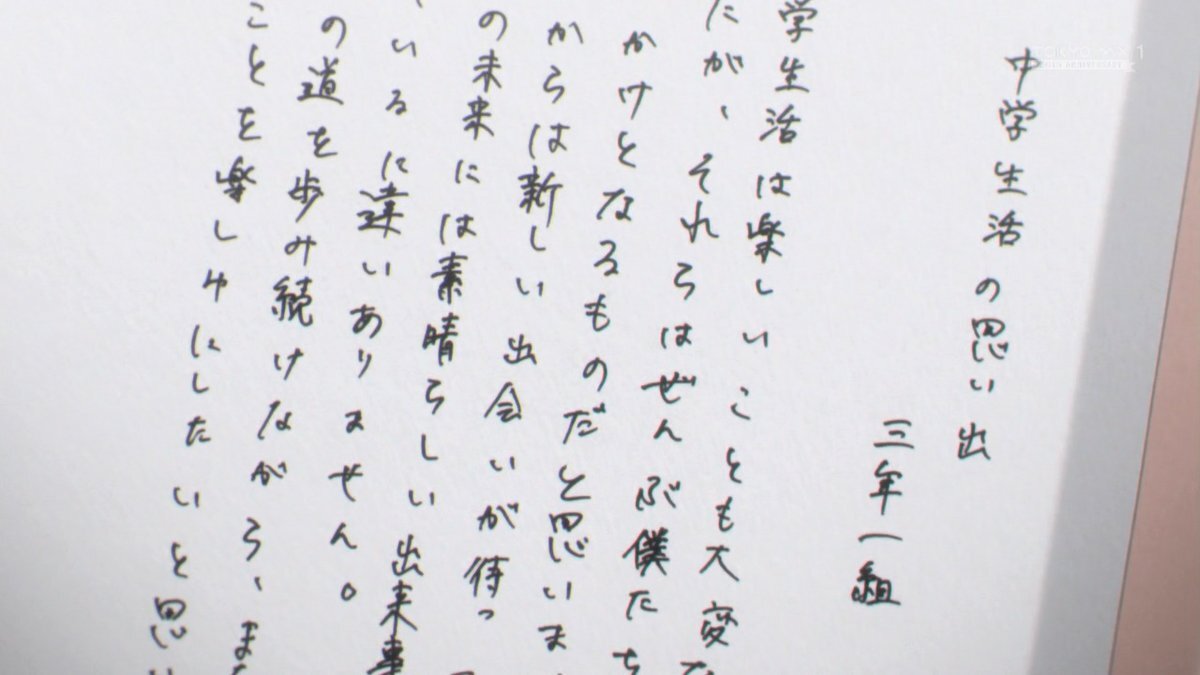 中学生活の思い出
三年一組
学生活は楽しいことも大変な
だが、それらはぜんぶ僕たち
かけとなるものだと思いま
からは新しい出会いが待っ
の未来には素晴らしい出来事
いるに違いありません。
の道を歩み続けながら、また
ことを楽しみにしたいと思い
TOKYO MX 1